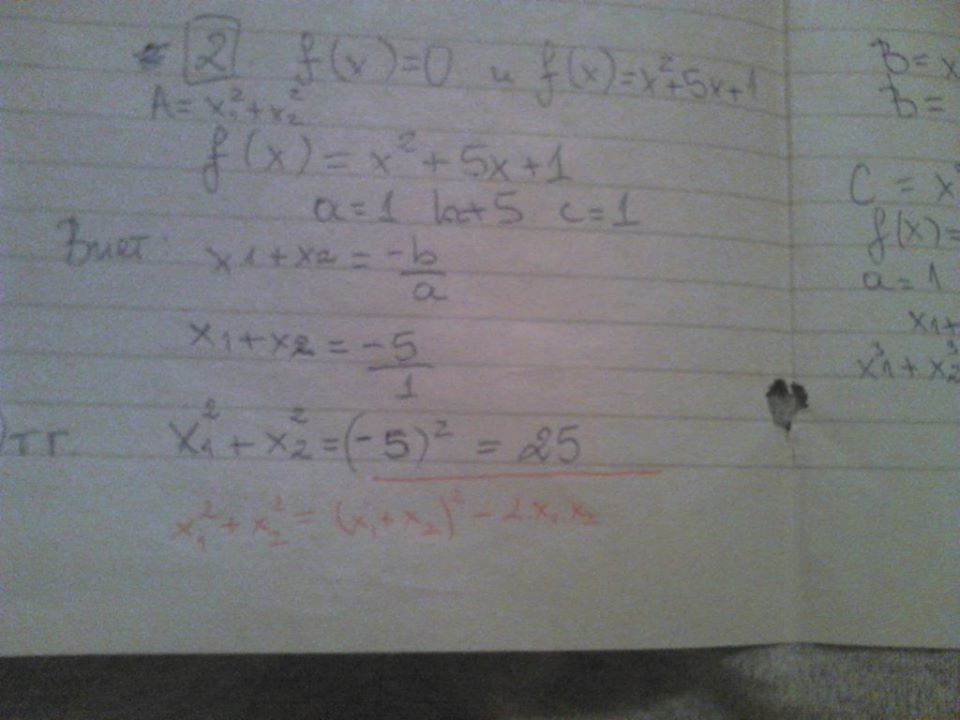 2 f(x)=0 и f(x)=x²+5x+1
A= x₁²+x₂²
f(x) = x²+5x+1
a=1 b=+5 c=1
Виет: x1+x2 = -b/a
x1+x2 = -5/1
от г. x₁² + x₂² = (-5)² = 25
x₁² + x₂² = (x₁+x₂)² - 2x₁x₂
B= x
B=
C = x²
f(x)=
a=1
x1+
x³1+x³2